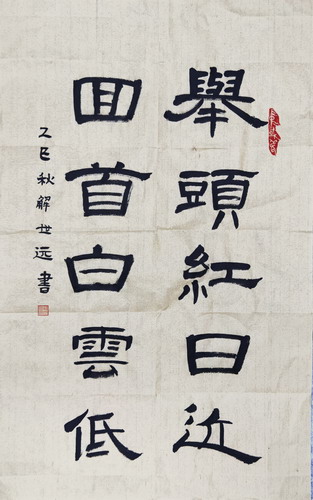 舉頭紅日近
回首白雲低
乙巳秋解世远書